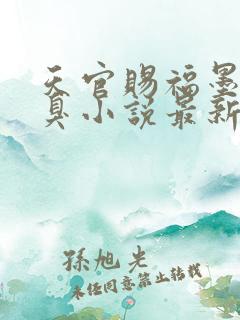 天官赐福墨
真小说最新
孫旭光
未经同意禁止转载